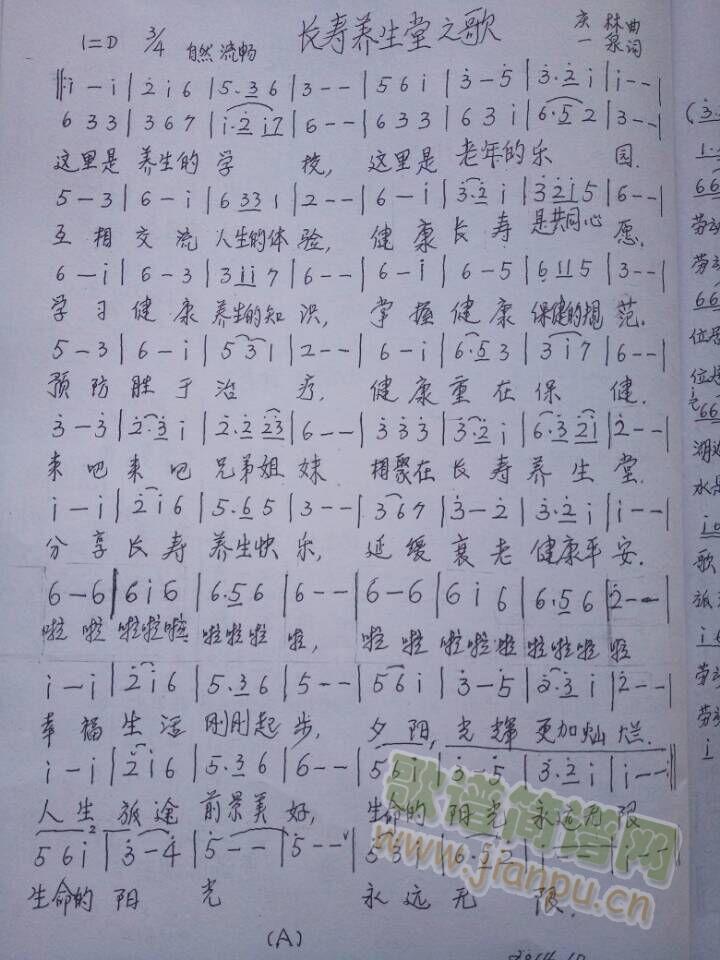 长寿养生堂之歌
1=D 3/4 自然 流畅
林 曲
一泉 词
‖: i - i | 2̇ i 6 | 5·3 6 | 3 - - | 5 6 i | 3̇ - 5̇ | 3̇·2̇ i | i - - |
6 3 3 | 3 6 7 | i·2̇ i7 | 6 - - | 6 3 3 | 6 3 i | 6·5 2 | 3 - - |
这里是 养生的 学 校, 这里是 老年的乐 园.
5 - 3 | 6 - i | 6 33 1 | 2 - - | 6 - i | 3̇·2̇ i | 3̇ 2̇i 5 | 6 - - |
互相交流 人生的体验, 健康长寿 是共同心愿.
6 - i | 6 - 3 | 3 ii 7 | 6 - - | 6 - i | 6 - 5 | 6 11 5 | 3 - - |
学习健康 养生的知识, 掌握健康 保健的规范.
5 - 3 | 6 - i | 5 3 1 | 2 - - | 6 - i | 6·5 3 | 3 i 7 | 6 - - |
预防胜于治疗, 健康重在保健.
3̇ - 3̇ | 2̇·3̇ i | 2̇·2̇ 2̇3̇ | 6 - - | 3̇ 3̇ 3̇ | 3̇·2̇ i | 6·3̇ 2̇i | 2̇ - - |
来吧来吧 兄弟姐妹 相聚在长寿养生堂.
i - i | 2̇ i 6 | 5·6 5 | 3 - - | 3 6 7 | 3̇ - 2̇ | 3̇·2̇ i | i - - |
分享长寿 养生快乐, 延缓衰老 健康平安.
6 - 6 | 6 i 6 | 6·5 6 | 6 - - | 6 - 6 | 6 i 6 | 6·5 6 | 2̇ - - |
啦啦 啦啦啦 啦啦啦 啦, 啦啦 啦啦啦 啦啦啦 啦
i - i | 2̇ i 6 | 5·3 6 | 5 - - | 5 6 i | 3̇ - 5̇ | 2̇·3̇ i | 2̇ - - |
幸福生活 刚刚起步, 夕阳,光辉 更加灿烂.
i - i | 2̇ i 6 | 5·3 6 | 6 - - | 5 6 i | 3̇ - 5̇ | 3̇·2̇ i | i - - :‖
人生旅途 前景美好, 生命的阳光 永远无限
5 6 i | 3̇ - 4̇ | 5̇ - - | 5̇ - - | 5 3 i | 6·5 2̇ | i - - | i - - |
生命的 阳 光 永远无 限.
(A)
歌谱简谱网
www.jianpu.cn